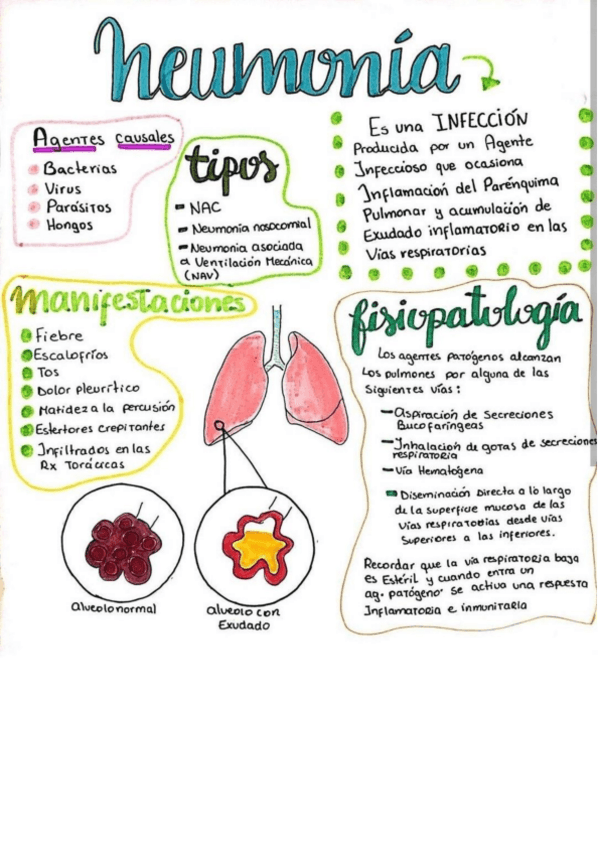 neumonía
Es una INFECCIÓN
Producida por un Agente
Infeccioso que ocasiona
Inflamación del Parénquima
Pulmonar y acumulación de
Exudado inflamatorio en las
Vías respiratorias
Agentes causales
Bacterias
Virus
Parásitos
Hongos
tipos
- NAC
- Neumonia nosocomial
- Neumonia asociada
a Ventilación Mecánica
(NAV)
manifestaciones
Fiebre
Escalofríos
Tos
Dolor pleurítico
Matidez a la percusión
Estertores crepitantes
Infiltrados en las
Rx Torácicas
alveolo normal
alveolo con
Exudado
fisiopatología
Los agentes patógenos alcanzan
Los pulmones por alguna de las
Siguientes vías:
- Aspiración de Secreciones
Bucofaríngeas
- Inhalación de gotas de secreciones
respiratoria
- Vía Hematógena
Diseminación Directa a lo largo
de la superficie mucosa de las
Vías respiratorias desde vías
Superiores a las inferiores.
Recordar que la vía respiratoria baja
es Estéril y cuando entra un
ag. patógeno se activa una respuesta
Inflamatoria e inmunitaria